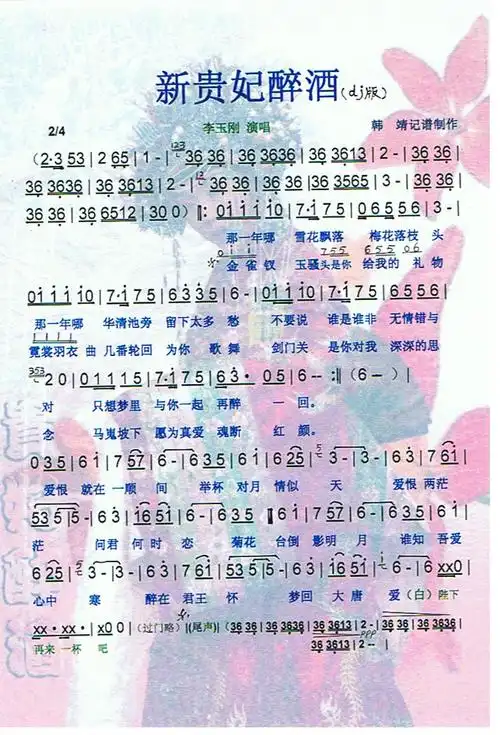 新贵妃醉酒(dj版)
2/4 李玉刚 演唱 韩 靖记谱制作
(2·3 53 | 2 65 | 1 - | 36 36 | 36 3636 | 36 3613 | 2 - | 36 36 |
36 3636 | 36 3613 | 2 - | 36 36 | 36 3636 | 36 3565 | 3 - | 36 36 |
36 36 | 36 6512 | 30 0) |: 01 11 10 | 7·1 75 | 06 55 6 | 3 - |
那一年哪 雪花飘落 梅花落枝 头
金雀钗 玉骚头是你 给我的 礼 物
01 11 10 | 7·1 75 | 6335 | 6 - | 01 11 10 | 7·1 75 | 6556 |
那一年哪 华清池旁 留下太多 愁 不要说 谁是谁非 无情错与
霓裳羽衣 曲 几番轮回 为你 歌舞 剑门关 是你对我 深深的思
2 0 | 01115 | 7·1 75 | 63· 05 | 6 -- :| (6 -- ) |
对 只想梦里 与你一起 再醉 一 回。
念 马嵬坡下 愿为真爱 魂断 红 颜。
035 | 61 | 7 57 | 6 - | 6 35 | 61 | 6 25 | 3 - | 3 - | 63 | 7 61 |
爱恨 就在 一顾 间 举杯 对月 情似 天 爱恨 两茫
53 5 | 5 - | 63 | 16 51 | 6 - | 6 35 | 61 | 7 57 | 6 - | 6 35 | 61 |
茫 问君 何时 恋 菊花 台倒 影明 月 谁知 吾爱
6 25 | 3 - | 3 - | 63 | 7 61 | 53 5 | 5 - | 63 | 16 51 | 6 - | 6 xx0 |
心中 寒 醉在 君王 怀 梦回 大唐 爱 (白) 陛下
xx· xx· | x0 0 | (过门略) |(尾声)| (36 36 | 36 3636 | 36 3613 | 2 - | 36 36 | 36 3636 |
再来 一杯 吧 36 3613 | 2 -- |
ppp